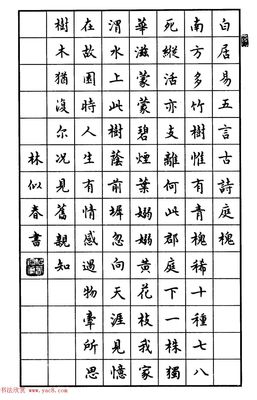 白居易五言古詩庭槐
南方多竹樹惟有青槐稀十一種七八
死縱活亦支離何有此郡庭下一株獨
華滋蒙蒙碧煙葉嫋嫋黃花枝我家
渭水上此樹蔭前墀忽向天涯見憶
在故園時人生有情感遇物牽所思
樹木猶復尔況見舊親知
林似春書
书法欣赏